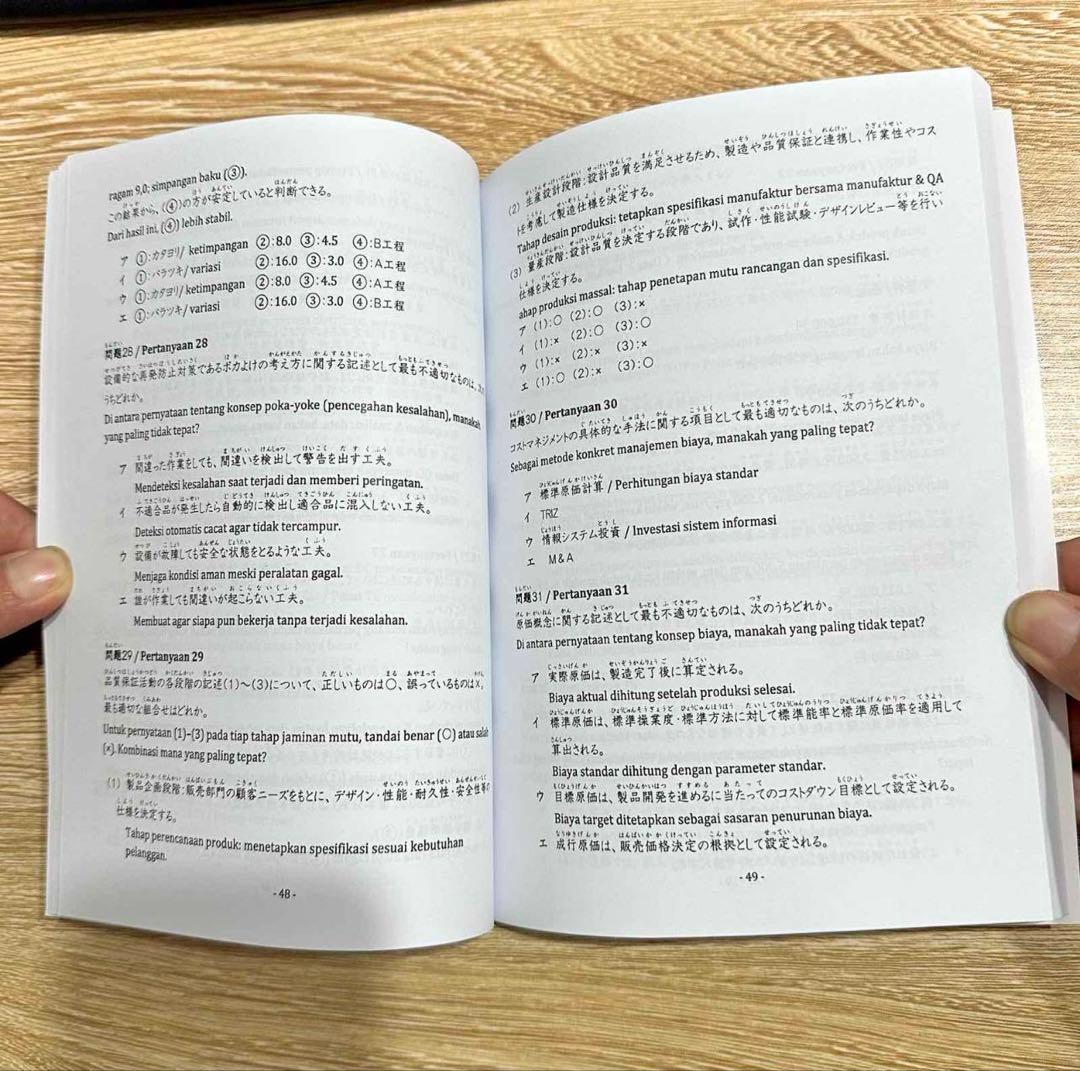 ragam 9,0; simpangan baku (③).
この結果から、(④)の方が安定していると判断できる。
Dari hasil ini, (④) lebih stabil.
ア ①:カタヨリ/ ketimpangan ②:8.0 ③:4.5 ④:B工程
イ ①:バラツキ/ variasi ②:16.0 ③:3.0 ④:A工程
ウ ①:カタヨリ/ ketimpangan ②:8.0 ③:4.5 ④:A工程
エ ①:バラツキ/ variasi ②:16.0 ③:3.0 ④:B工程
問題28 / Pertanyaan 28
設備的な再発防止対策であるポカよけの考え方に関する記述として最も不適切なものは、次の
うちどれか。
Di antara pernyataan tentang konsep poka-yoke (pencegahan kesalahan), manakah
yang paling tidak tepat?
ア 間違った作業をしても、間違いを検出して警告を出す工夫。
Mendeteksi kesalahan saat terjadi dan memberi peringatan.
イ 不適合品が発生したら自動的に検出し適合品に混入しない工夫。
Deteksi otomatis cacat agar tidak tercampur.
ウ 設備が故障しても安全な状態をとるような工夫。
Menjaga kondisi aman meski peralatan gagal.
エ 誰が作業しても間違いが起こらない工夫。
Membuat agar siapa pun bekerja tanpa terjadi kesalahan.
問題29 / Pertanyaan 29
品質保証活動の各段階の記述(1)～(3)について、正しいものは○、誤っているものは×、
最も適切な組合せはどれか。
Untuk pernyataan (1)–(3) pada tiap tahap jaminan mutu, tandai benar (○) atau salah
(×). Kombinasi mana yang paling tepat?
(1) 製品企画段階:販売部門の顧客ニーズをもとに、デザイン・性能・耐久性・安全性等の
仕様を決定する。
Tahap perencanaan produk: menetapkan spesifikasi sesuai kebutuhan
pelanggan.
- 48 -
(2) 生産設計段階:設計品質を満足させるため、製造や品質保証と連携し、作業性やコス
トを考慮して製造仕様を決定する。
Tahap desain produksi: tetapkan spesifikasi manufaktur bersama manufaktur & QA
(3) 量産段階:設計品質を決定する段階であり、試作・性能試験・デザインレビュー等を行い
仕様を決定する。
ahap produksi massal: tahap penetapan mutu rancangan dan spesifikasi.
ア (1):○ (2):○ (3):×
イ (1):× (2):○ (3):○
ウ (1):× (2):× (3):×
エ (1):○ (2):× (3):○
問題30 / Pertanyaan 30
コストマネジメントの具体的な手法に関する項目として最も適切なものは、次のうちどれか。
Sebagai metode konkret manajemen biaya, manakah yang paling tepat?
ア 標準原価計算 / Perhitungan biaya standar
イ TRIZ
ウ 情報システム投資 / Investasi sistem informasi
エ M&A
問題31 / Pertanyaan 31
原価概念に関する記述として最も不適切なものは、次のうちどれか。
Di antara pernyataan tentang konsep biaya, manakah yang paling tidak tepat?
ア 実際原価は、製造完了後に算定される。
Biaya aktual dihitung setelah produksi selesai.
イ 標準原価は、標準操業度・標準方法に対して標準能率と標準原価率を適用して
算出される。
Biaya standar dihitung dengan parameter standar.
ウ 目標原価は、製品開発を進めるに当たってのコストダウン目標として設定される。
Biaya target ditetapkan sebagai sasaran penurunan biaya.
エ 成行原価は、販売価格決定の根拠として設定される。
- 49 -